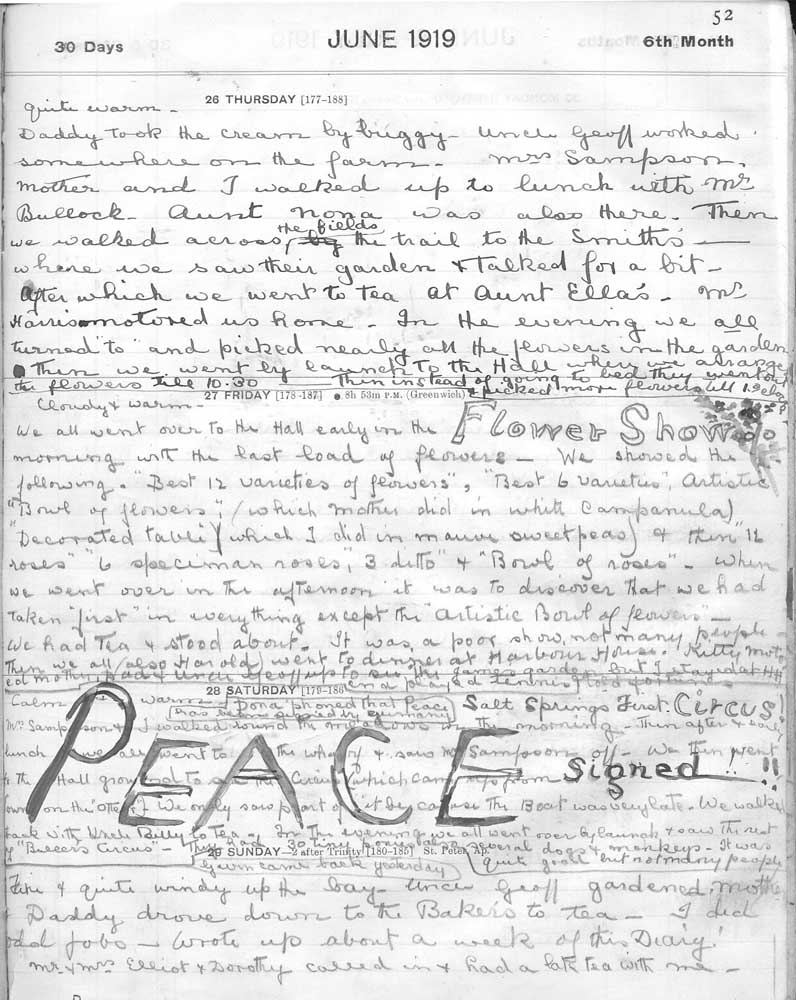 52
30 Days JUNE 1919 6th Month
26 THURSDAY [177-188]
quite warm -
Daddy took the cream by buggy - Uncle Geoff worked
somewhere on the farm - Mrs Sampson,
Mother and I walked up to lunch with Mr
Bullock - Aunt Nona was also there. Then
we walked across the fields by the trail to the Smith's -
where we saw their garden & talked for a bit -
After which we went to tea at Aunt Ella's - Mrs
Harris motored us home - In the evening we all
"turned to" and picked nearly all the flowers in the garden
Then we went by launch to the Hall where we arranged
the flowers till 10:30 - Then instead of going to bed they went out
& picked more flowers till
27 FRIDAY [178-187] 8h 53m P.M. (Greenwich)
Cloudy & warm -
Flower Show
We all went over to the Hall early in the
morning with the last load of flowers - We showed the
following. "Best 12 varieties of flowers", "Best 6 varieties", Artistic
"Bowl of flowers", (which mother did in white Campanula)
"Decorated table" (which I did in mauve sweetpeas) & then "12
roses" "6 speciman roses", 3 ditto" & "Bowl of roses" - When
we went over in the afternoon it was to discover that we had
taken "first" in everything except the "Artistic Bowl of flowers" -
We had tea & stood about. It was a poor show, not many people -
Then we all (also Harold) went to dinner at Harbour House. Kitty motor
ed mother, Dad & Uncle Geoff up to see the garden but I stayed at HH
and played tennis & told fortunes
28 SATURDAY [179-186
Calm & warm - Dona 'phoned that Peace
has been signed by Germany
Salt Springs First Circus!
PEACE signed !!!
Mrs Sampson & I walked round the meadows in the morning - Then after an early
lunch we all went to the wharf & saw Mrs Sampson off - We then went
to the Hall ground to see the Circus which came up from
town on the "Otter". We only saw part of it because the Boat was very late. We walked
back with Uncle Billy to tea. In the evening we all went over by launch & saw the rest
of "Bullers Circus" - They had 30 tiny ponies also several dogs & monkeys - It was
quite good but not many people
29 SUNDAY—2 after Trinity [180-185] St. Peter, Ap.
Gwen came back yesterday
Fine & quite windy up the bay. Uncle Geoff gardened, mother
& Daddy drove down to the Bakers to tea - I did
odd jobs - Wrote up about a week of this Diary!
Mr & Mrs Elliot & Dorothy called in & had a late tea with me -